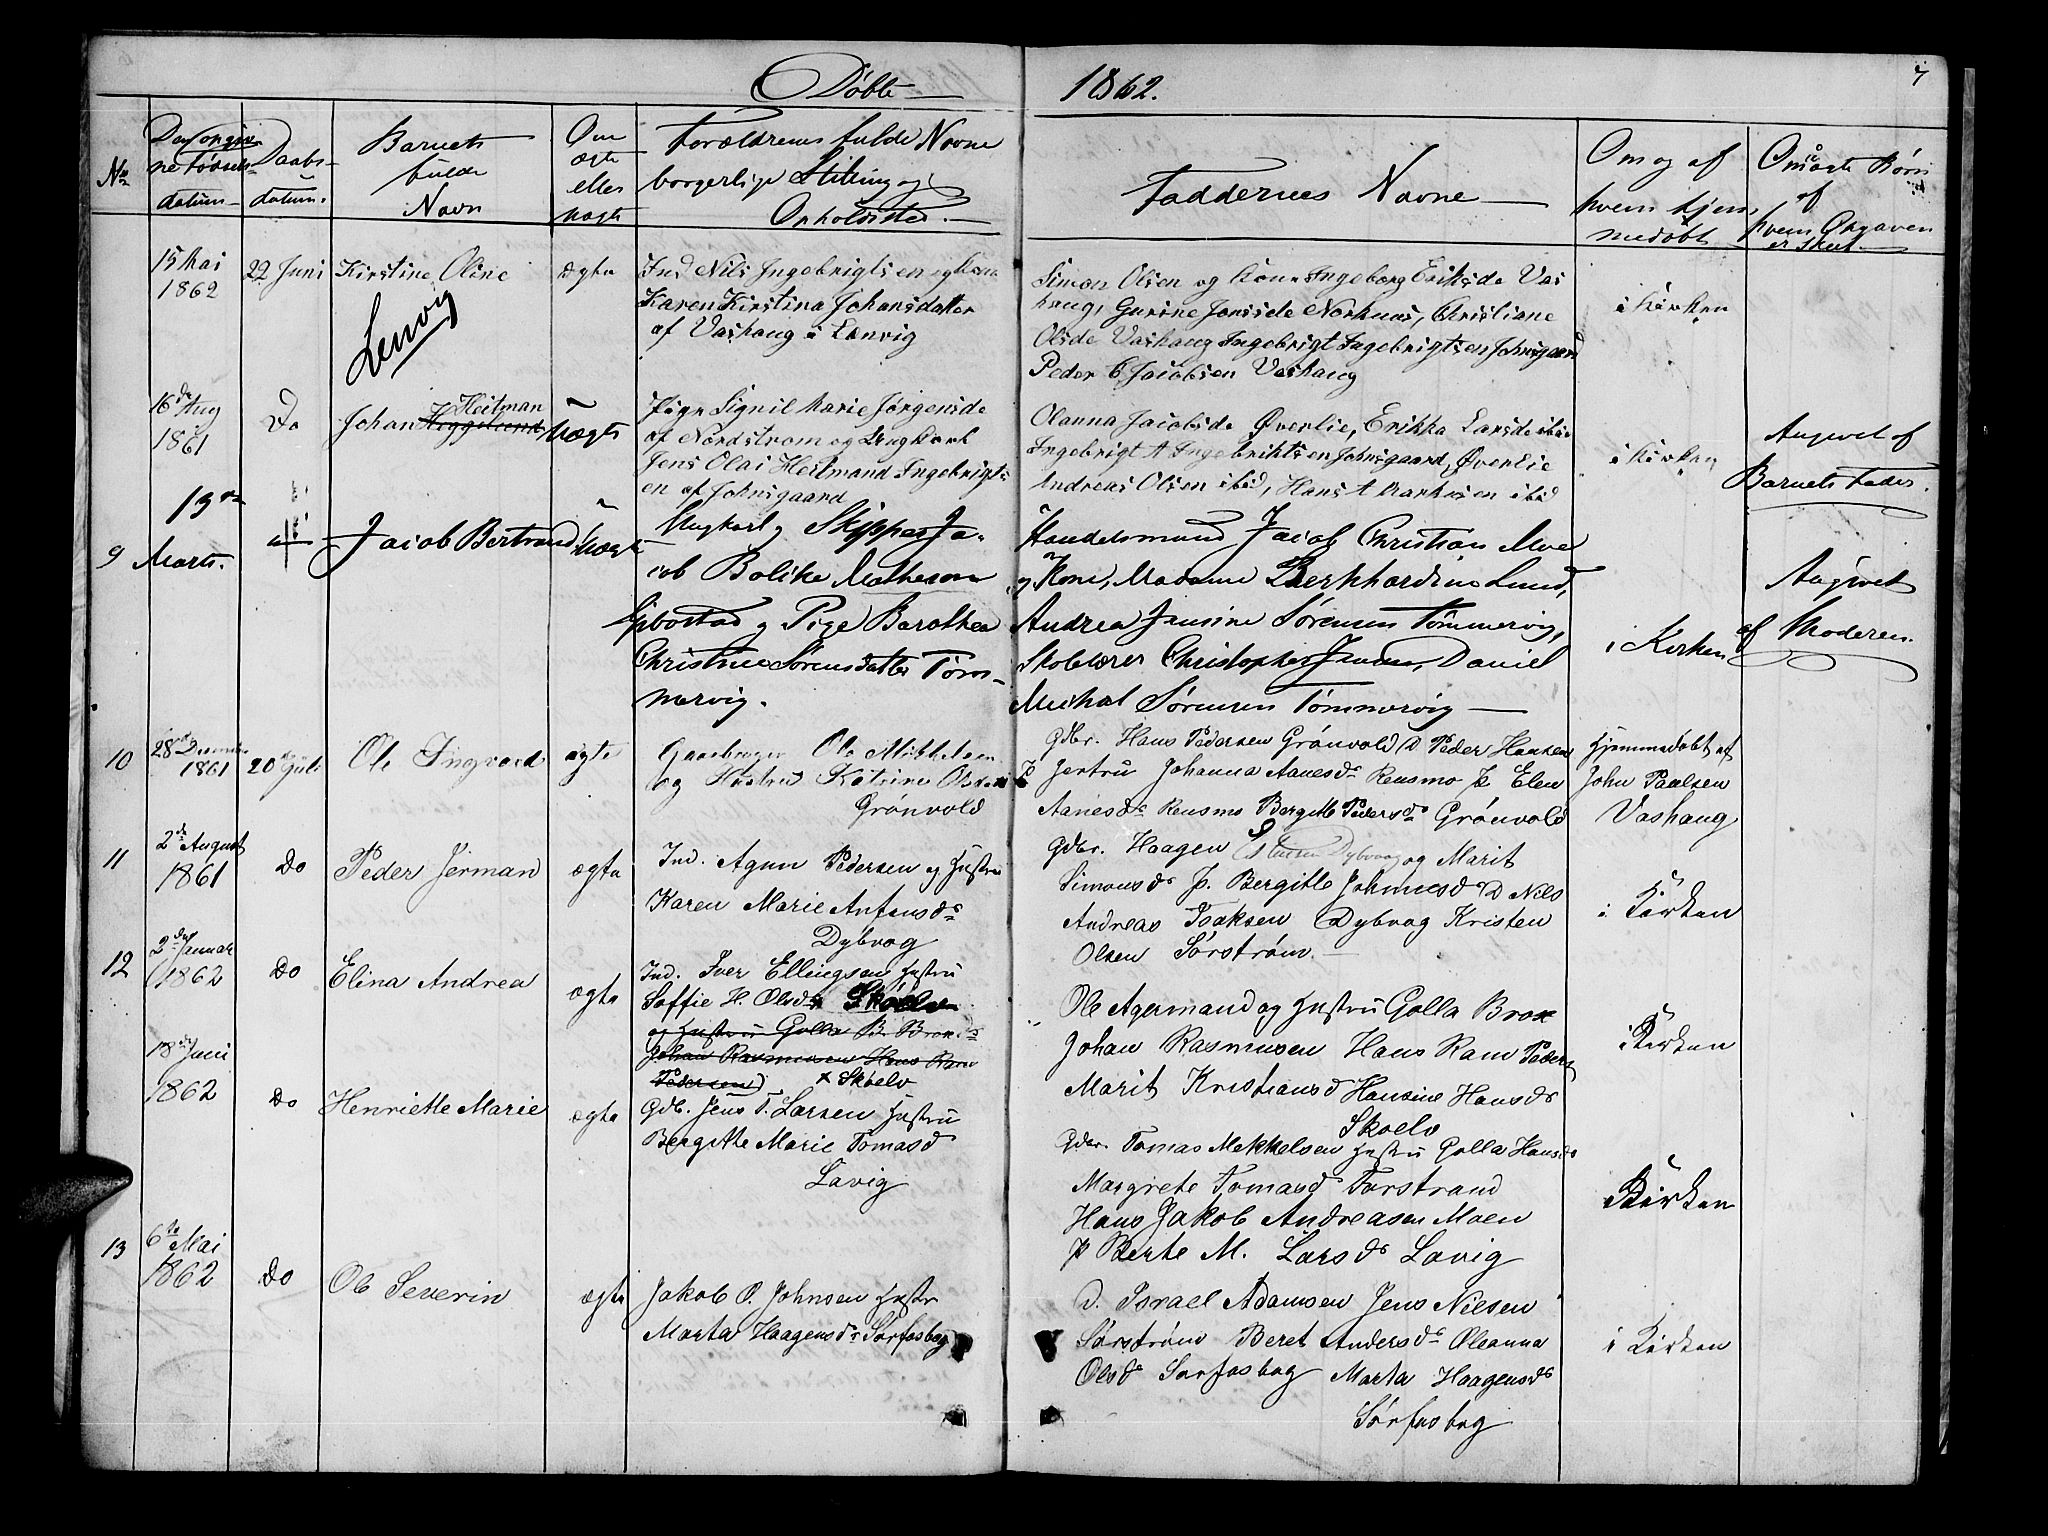 Døbte 1862. 7
No
Den
ne Fødsels
datum
Daabs-
datum.
Barnets
fulde
Navn
Om
ægte
eller
uægte
Forældrenes fulde Navne
borgerlige Stilling og
Opholdssted.
Faddernes Navne
Om og af
hvem hjem-
medøbt
Om Børn
af
hvem Opgaven
er skeet
15 Mai
1862
22 Juni
Kirstine Oline
Lenvig
ægte
Ind Nils Ingebrigtsen og Kone
Karen Kirstina Johansdatter
af Vashaug i Lenvig
Simon Olsen og Kone Ingeborg Eriksde Vas
haug, Gurine Jonsde Nordnas, Christiane
Olsde Vashaug Ingebrigt Ingebrigtsen Johnsgaard
Peder C Jacobsen Vashaug
i Kirken
16de Aug
1861
Do
Johan Heitman
Uægte
Pige Signil Marie Jørgensde
af Nordstrøm og Ungkarl
Jens Olai Heitmand Ingebrigts
en af Johnsgaard
Olanna Jacobsde Øverlie, Erikka Larsde ibid
Ingebrigt A Ingebriktsen Johnsgaard, Øverlie
Andreas Olsen ibid, Hans A Markusen ibid
i Kirken
Angivet af
Barnets Fader.
9
13de
Marts.
Jacob Bertrand
Uægte
Ungkarl og Skipper Ja-
cob Bolike Mathesen
Gibostad og Pige Barothea
Christine Sørensdatter Tøm-
mervig.
Handelsmand Jacob Christian Moe
og Kone, Madame Bernhardine Lund,
Andrea Jensine Sørensen Tømmervig,
Skolelærer Christopher Jensen, Daniel
Michal Sørensen Tømmervig
i Kirken
Angivet
af Moderen.
10
28de December
1861
20de Juli
Ole Ingvard
ægte
Gaardbruger Ole Mikkelsen
og Hustru Katrine Olsde
Grønvold
Gdbr. Hans Pedersen Grønvold D Peder Hansen
Jertru Johanna Aanesde Rensmo P Elen
Aanesde Rensmo Bergitte Pedersde Grønvold
Hjemmedøbt af
John Paulsen
Vashaug
11
2de August
1861
Do
Peder Jerman
ægte
Ind. Agnu Pedersen og Hustru
Karen Marie Antonsde
Dybvog
Gdbr. Haagen Dybvaag og Marit
Simonsde P. Bergitte Johnnesde D Nils
Andreas Isaksen Dybvog Kristen
Olsen Sørstrøm.
i Kirken
12
2de Januar
1862
Do
Elina Andrea
ægte
Ind. Iver Ellingsen Hustru
Soffie H. Olsde Skoelv
og Hustru Golla B. Brox
Johan Rasmusen Hans Ram
Pedersen) x Skoelv
Ole Agermand og Hustru Golla Brox
Johan Rasmusen Hans Ram Peders
Marit Kristiansd Hansine Hansde
Skoelv
i Kirken
18de Juni
1862
Do
Henriette Marie
ægte
Gdb. Jens T. Larsen Hustru
Bergitte Marie Tomasd
Lavig
Gdbr Tomas Mekkelsen Hustru Golla Hansde
Margrete Tomasd Forstrand
Hans Jakob Andreasen Moen
P Berte M. Larsde Lavig
Kirken
13
6te Mai
1862
Do
Ole Severin
ægte
Jakob O. Johnsen Hustr
Marta Haagensde Sørfosbog
D. Israel Adamsen Jens Nilsen
Sørstrøm Beret Andersde Oleanna
Olsde Sørfosbog Marta Haagensde
Sørfosbog
i Kirken